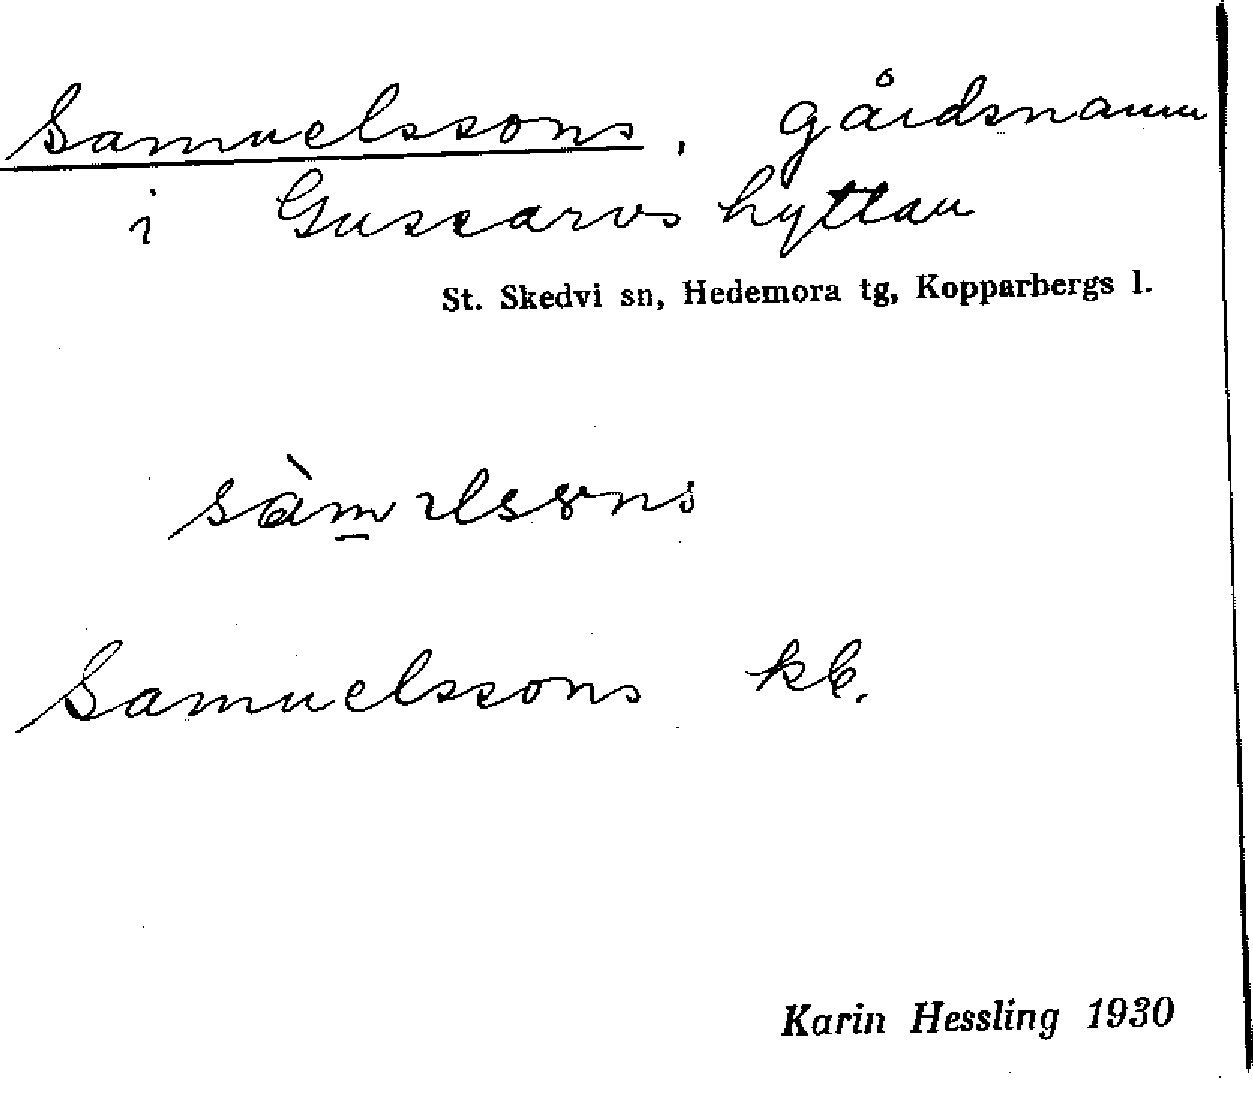 Samuelssons, gårdsnamn
i Gussarvshyttan
St. Skedvi sn, Hedemora tg, Kopparbergs l.
Samuelssons kb.
Karin Hessling 1930